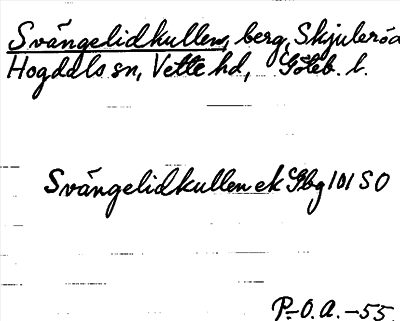 Svängelidkullen, berg, Skjuleröd
Hogdals sn, Vette hd, Göteb. l.
Svängelidkullen ek Gbg 101 SO
P.-O. A. -55.